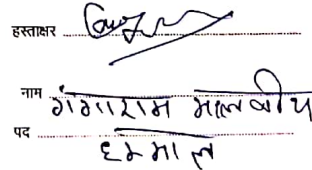 हस्ताक्षर
नाम गंगाराम मालवीय
पद हम्माल